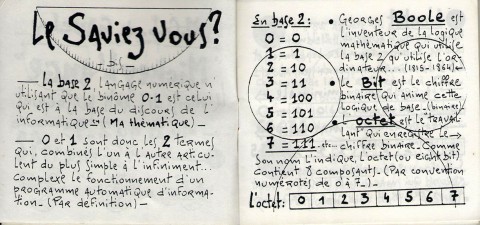 Le Saviez Vous?
La base 2, langage numérique n'
utilisant que le binôme 0-1 est celui
qui est à la base du discours de l'
informatique - (Ma thématique) -
0 et 1 sont donc les 2 termes
qui, combinés l'un à l'autre articu-
lent du plus simple à l'infiniment...
complexe le fonctionnement d'un
programme automatique d'informa-
tion - (Par définition) -
En base 2 :
0 = 0
1 = 1
2 = 10
3 = 11
4 = 100
5 = 101
6 = 110
7 = 111 ...etc...
• Georges Boole est
l'inventeur de la logique
mathématique qui utilise
la base 2 qu'utilise l'or-
dinateur... (1815-1864) -
• Le Bit est le chiffre
binaire qui anime cette
logique de base - (binaire)
• L'octet est le travail
lant qui enregistre le →
chiffre binaire. Comme
son nom l'indique, l'octet (ou eight bit)
contient 8 composants - (Par convention
numérotés de 0 à 7) -
l'octet: 0 1 2 3 4 5 6 7